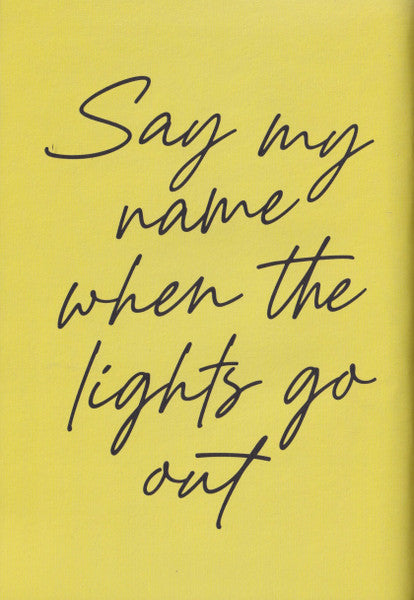 Say my
name
when the
lights go
out